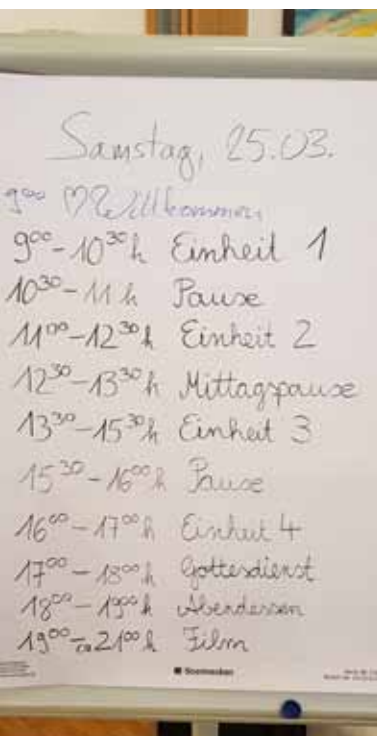 Samstag, 25.03.
9⁰⁰ ♡ Willkommen
9⁰⁰-10³⁰h Einheit 1
10³⁰-11h Pause
11⁰⁰-12³⁰h Einheit 2
12³⁰-13³⁰h Mittagspause
13³⁰-15³⁰h Einheit 3
15³⁰-16⁰⁰h Pause
16⁰⁰-17⁰⁰h Einheit 4
17⁰⁰-18⁰⁰h Gottesdienst
18⁰⁰-19⁰⁰h Abendessen
19⁰⁰-ca 21⁰⁰h Film